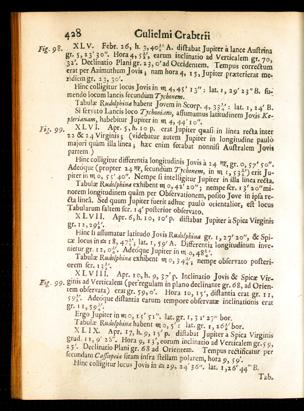 428 Gulielmi Crabterii
Fig. 98. XLV. Febr. 26, h. 3, 40½' A. distabat Jupiter à lance Austrina
gr. 5, 13' 30". Hora 4, 5¾', earum inclinatio ad Verticalem gr. 70,
32'. Declinatio Plani gr. 23, 0' ad Occidentem. Tempus correctum
erat per Azimuthum Jovis; nam hora 4, 15, Jupiter præterierat me-
ridiem gr. 23, 30'.
Hinc colligitur locus Jovis in m 4, 45' 13": lat. 1, 29' 23" B. su-
mendo locum lancis secundum Tychonem.
Tabulæ Rudolphinæ habent Jovem in Scorp. 4, lat. 1, 24' B.
Si servato Lancis loco Tychonico, assumamus latitudinem Jovis Ke-
plerianam, habebitur Jupiter in m 4, 44' 10".
Fig. 99. XLVI. Apr. 5, h. 10 p. erat Jupiter quasi in linea recta inter
22 & 24 Virginis; (videbatur autem Jupiter in longitudine paulo
majori quàm illa linea; hæc enim secabat nonnisi Australem Jovis
partem)
Hinc colligitur differentia longitudinis Jovis à 24 gr. 0, 57' 50".
Adeóque (propter 24 secundum Tychonem, in m 1, ) erit Ju-
piter in m 0, 51' 40". Nempe si intelligatur Jupiter in illa linea recta.
Tabulæ Rudolphinæ exhibent m 0, 42' 20"; nempe scr. 1 20" mi-
norem longitudinem quàm per Observationem, posito Jove in ipsa re-
cta linea. Sed quum Jupiter fuerit adhuc paulo orientalior, est locus
Tabularum saltem scr. 14' posterior observato.
XLVII. Apr. 6, h. 10, 10' p. distabat Jupiter à Spica Virginis
gr. 11,
Hinc si assumatur latitudo Jovis Rudolphina gr. 1, 27' 20", & Spi-
cæ locus in 18, lat. 1, 59' A. Differentia longitudinum inve-
nietur gr. 12, Adeóque Jupiter in m 0,
Tabulæ Rudolphinæ exhibent m 0, nempe observato posteri-
orem scr.
Fig. 99. XLVIII. Apr. 10, h. 9, 37' p. Inclinatio Jovis & Spicæ Vir-
ginis ad Verticalem (per regulam in plano declinante gr. 68, ad Orien-
tem observata) erat gr. 59, 0'. Hora 10, 15', distantia erat gr. 11,
Adeóque distantia earum tempore observatæ inclinationis erat
gr. 11,
Ergo Jupiter in m 0, 15' 51". lat. gr. 1, 31' 27" bor.
Tabulæ Rudolphinæ habent m 0, 5': lat. gr. 1, bor.
XLIX. Apr. 17, h. 9, 15' p. distabat Jupiter à Spica Virginis
grad. 11, 0' 26". Hora 9, 13', eorum inclinatio ad Verticalem gr. 59,
25'. Declinatio Plani gr. 68 ad Orientem. Tempus rectificatur per
secundam Cassiopeiæ sitam infra stellam polarem, hora 9, 59'.
Hinc colligitur locus Jovis in 29, 24' 36". lat. 1, 26' 44" B.
Tab.